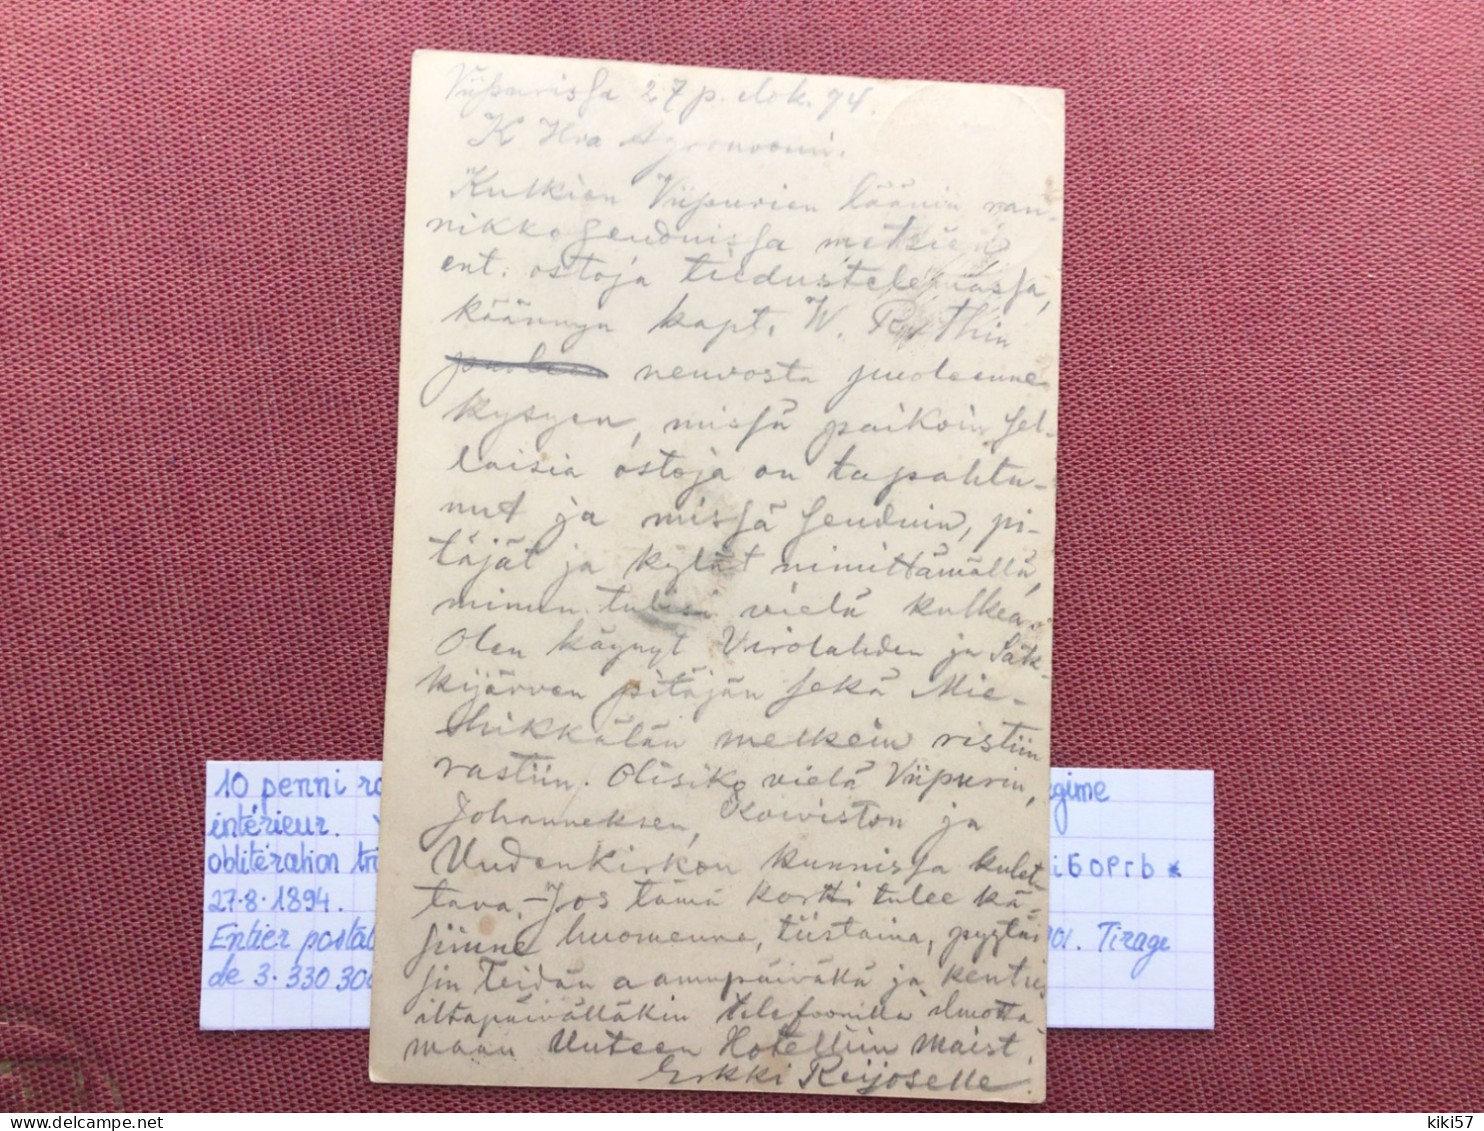 Viipurissa 27 p. elok. 94.
K. Hra Agronoomi.
Kulkien Viipurien läänin ran-
nikkoseuduissa metsien
ent. ostoja tiedustelemassa,
käännyn kapt. W. Ruthin
neuvosta puoleenne
kysyen, missä paikoin sel-
laisia ostoja on tapahtu-
nut ja missä seuduin, pi-
täjät ja kylät nimittämällä,
minun tulisi vielä kulkea.
Olen käynyt Virolahden ja Säk-
kijärven pitäjän sekä Mie-
hikkälän melkein ristiin
rastiin. Olisiko vielä Viipurin,
Johanneksen, Koiviston ja
Uudenkirkon kunnissa kulet-
tava. – Jos tämä kortti tulee kä-
siinne huomenna, tiistaina, pyytäi-
sin Teidän aamupäivällä ja
iltapäivälläkin telefoonilla ilmotta-
maan Uuteen Hotelliin maist.
Erkki Reijoselle.
10 penni
égime
intérieur.
oblitération
ібОРГЬ *
27.8.1894.
Entier postal
Tirage
de 3.330 300
kiki57